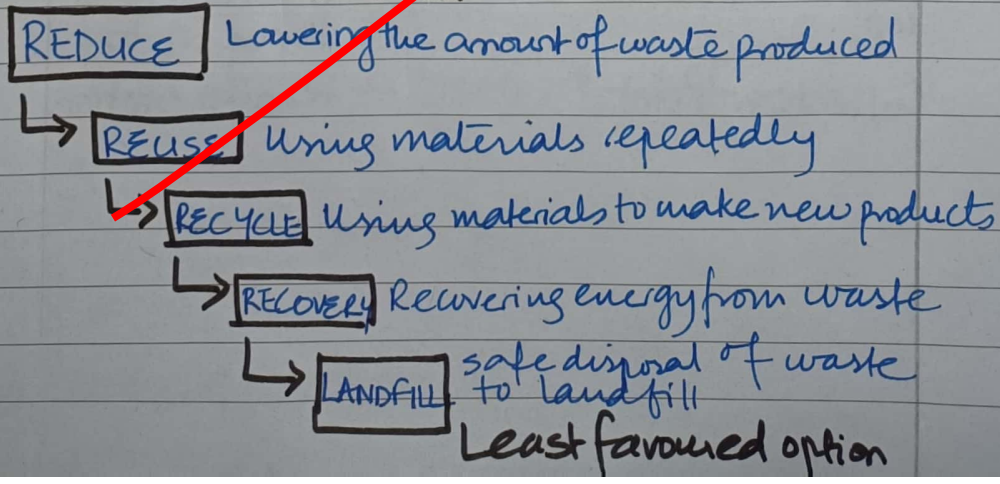 REDUCE Lowering the amount of waste produced
REUSE Using materials repeatedly
RECYCLE Using materials to make new products
RECOVERY Recovering energy from waste
LANDFILL safe disposal of waste
to landfill
Least favoured option